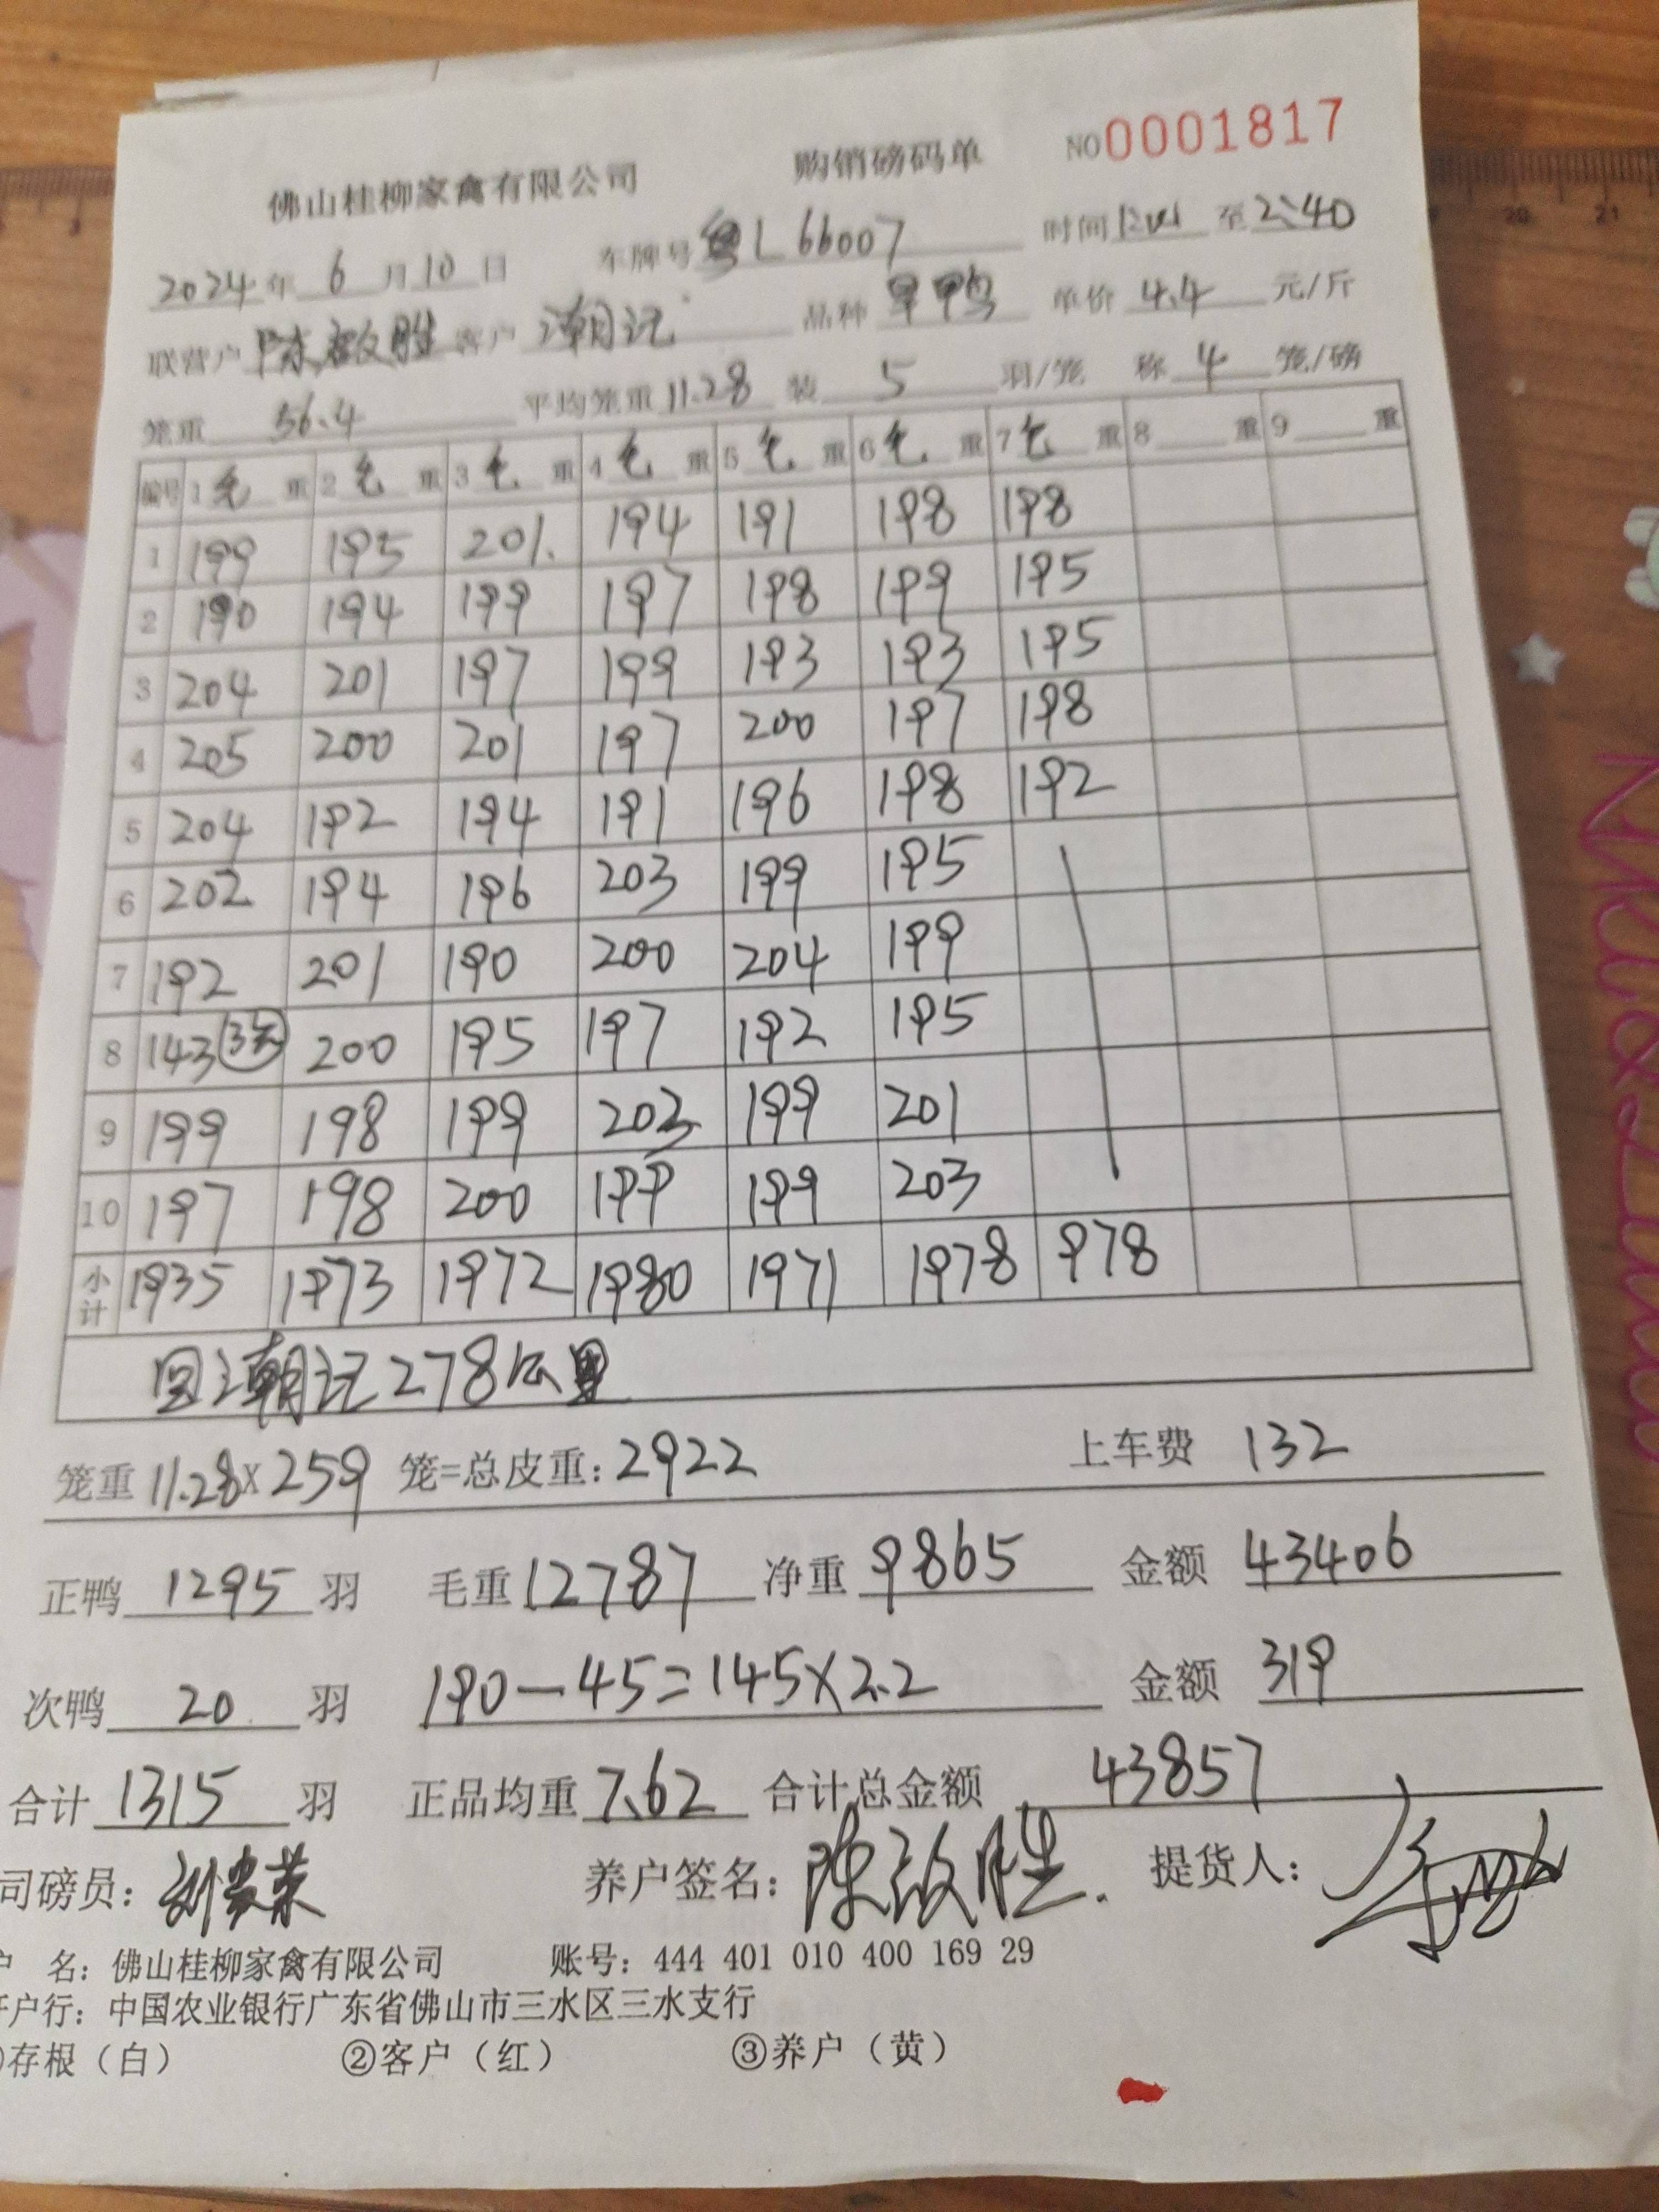 佛山桂柳家禽有限公司 购销磅码单 NO 0001817
2024 年 6 月 10 日 车牌号 粤L 66007 时间 至 2:40
联营户 陈敬胜 客户 潮记 品种 旱鸭 单价 4.4 元/斤
笼重 56.4 平均笼重 11.28 装 5 羽/笼 称 4 笼/磅
编号 1 毛 重 2 毛 重 3 毛 重 4 毛 重 5 毛 重 6 毛 重 7 毛 重 8 重 9 重
1 199 195 201. 194 191 198 198
2 190 194 199 197 198 199 195
3 204 201 197 199 193 193 195
4 205 200 201 197 200 197 198
5 204 192 194 191 196 198 192
6 202 194 196 203 199 195
7 192 201 190 200 204 199
8 143 200 195 197 192 195
9 199 198 199 203 199 201
10 197 198 200 199 199 203
小计 1935 1973 1972 1980 1971 1978 978
回潮记278公里
笼重 11.28×259 笼=总皮重: 2922 上车费 132
正鸭 1295 羽 毛重 12787 净重 9865 金额 43406
次鸭 20 羽 190-45=145×2.2 金额 319
合计 1315 羽 正品均重 7.62 合计总金额 43857
司磅员: 养户签名: 陈敬胜. 提货人:
名: 佛山桂柳家禽有限公司 账号: 444 401 010 400 169 29
户行: 中国农业银行广东省佛山市三水区三水支行
存根（白） ②客户（红） ③养户（黄）